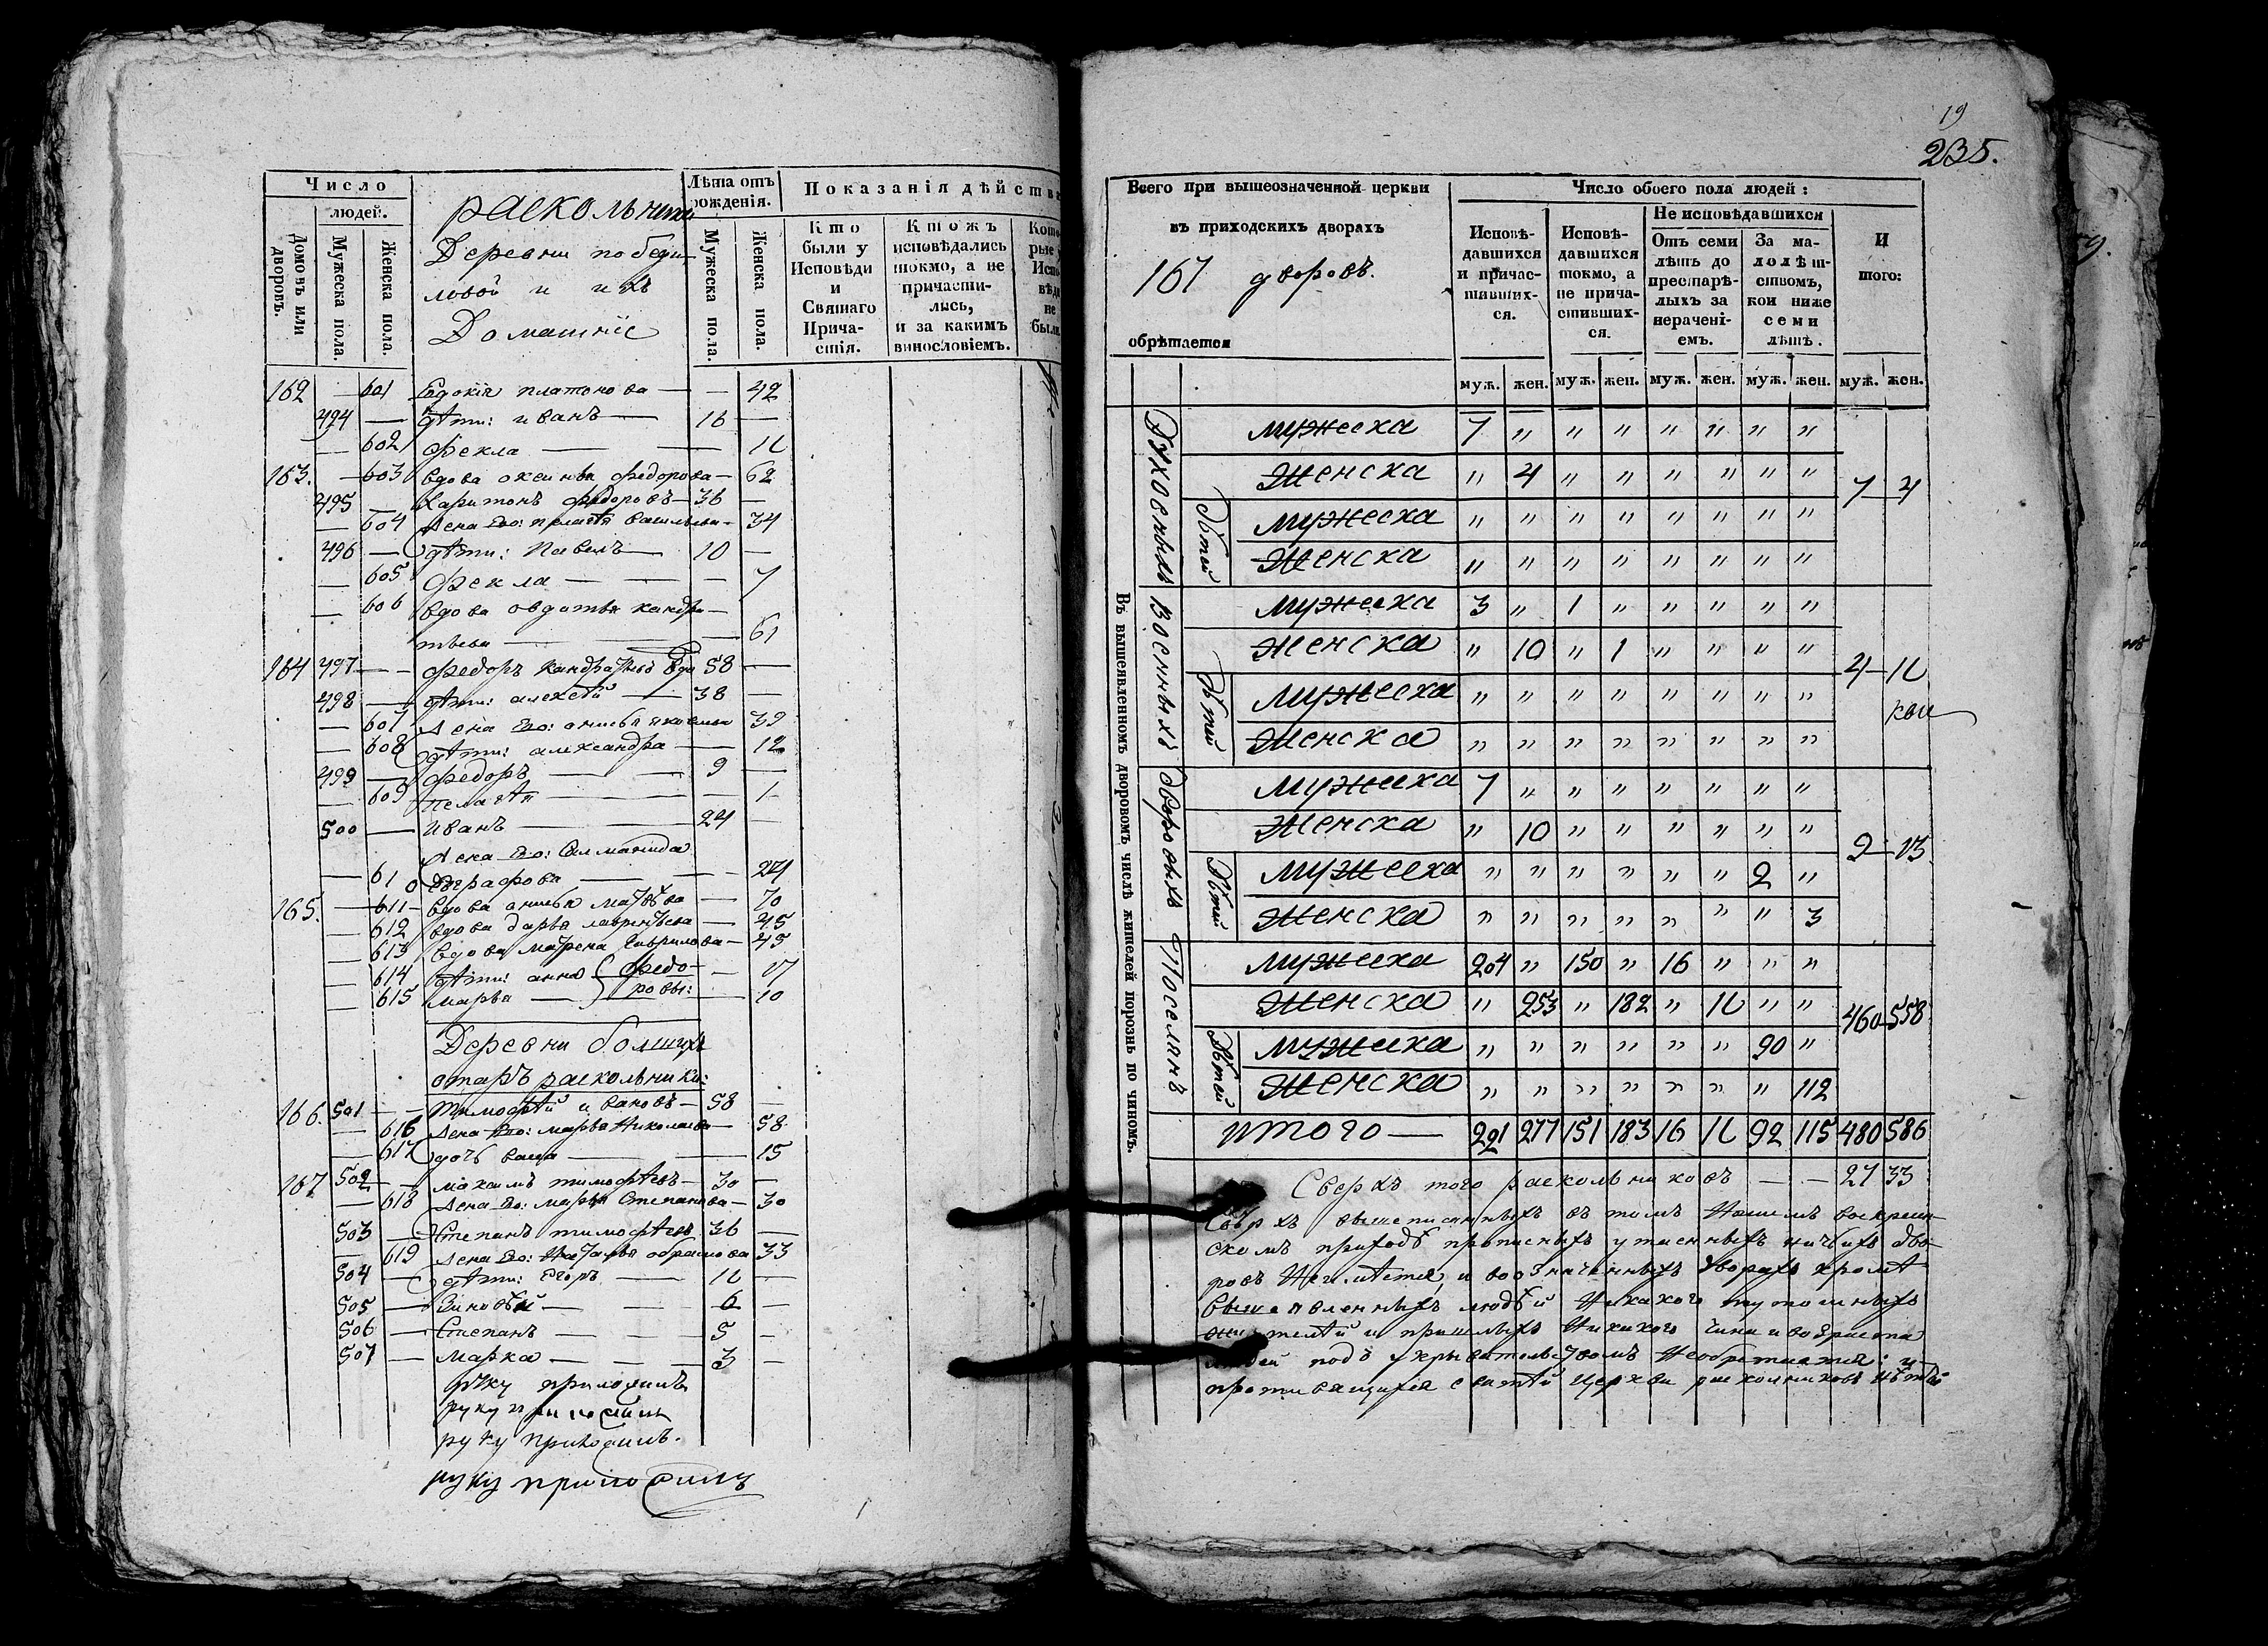 Число
людей.
Домовъ или дворовъ.
Мужеска пола.
Женска пола.
раскольники
Деревни победи-
ловой и ихъ
Домашнїе
Лѣта отъ рожденія.
Мужеска пола.
Женска пола.
Показанія дѣйств
Кто были у Исповѣди и Святаго Причастія.
Ктожъ исповѣдались токмо, а не причастились, и за какимъ винословіемъ.
162 — 601 Евдокія платонова — — 42
494 — дѣти: иванъ — 16 —
— 602 фекла — — 11
163. — 603 вдова оксинья федорова — 62
495 — харитонъ федоровъ — 36 —
— 604 жена его: пелагѣя васильева — 34
496 — дѣти: Павелъ — 10 —
— 605 фекла — — — 7
— 606 вдова овдотья кандра-
тьева — — 61
164 497 — — федоръ кандратьевъ вдов 58 —
498 — дѣти: алексѣй — 38 —
— 607 жена его: анисья яковлева 39
— 608 дѣти: александра — — 12
499 — федоръ — — 9 —
— 609 пелагѣя — — — 1
500 — иванъ — 24 —
жена его: Саламанида
— 610 Евграфова — — — 24
165. — 611 — вдова анисья матвѣева — 70
— 612 вдова дарья лаврентьева — 45
— 613 вдова матрена гаврилова — 45
— 614 дѣти: анна } федо- — 17
— 615 марья — } ровы: — 10
Деревни болшихъ
отаръ раскольники:
166. 501 — — тимофѣй ивановъ — 58 —
— 616 жена его: марья Николаева — 58
— 617 дочь васса — — 15
167 502 — — максимъ тимофѣевъ — 30 —
— 618 жена его: марья Степанова — 30
503 — Степанъ тимофѣевъ 36 —
— 619 жена его: Наталья абрамова 33
504 — дѣти: Егоръ — 11 —
505 — Зиновѣй — — 6 —
506 — Степанъ — — 5 —
507 — марка — — — 3 —
руку приложилъ
руку приложилъ
руку приложилъ.
руку приложилъ
19
235.
Всего при вышеозначенной церкви
въ приходскихъ дворахъ
167 дворовъ.
обрѣтается
Число обоего пола людей:
Исповѣдавшихся и причастившихся.
Исповѣдавшихся токмо, а не причастившихся.
Не исповѣдавшихся
Отъ семи лѣтъ до престарѣлыхъ за нераченіемъ.
За малолѣтствомъ, кои ниже семи лѣтъ.
И того:
муж. жен. муж. жен. муж. жен. муж. жен. муж. жен.
Въ вышеявленномъ дворовомъ числѣ жителей порознь по чиномъ.
Духовныхъ
мужеска 7 " " " " " " "
Женска " 4 " " " " " "
7 — 4
Дѣтей
мужеска " " " " " " " "
Женска " " " " " " " "
Военныхъ
мужеска 3 " 1 " " " " "
Женска " 10 " 1 " " " "
4 — 11
Дѣтей
мужеска " " " " " " " "
Женска " " " " " " " "
Дворовыхъ
мужеска 7 " " " " " " "
Женска " 10 " " " " " "
9 — 13
Дѣтей
мужеска " " " " " " 2 "
Женска " " " " " " " 3
Поселянъ
мужеска 204 " 150 " 16 " " "
Женска " 253 " 182 " 11 " "
460 — 558
Дѣтей
мужеска " " " " " " 90 "
Женска " " " " " " " 112
итого — 221 277 151 183 16 11 92 115 480 586
Сверхъ того раскольниковъ — — 27 33
Сверхъ вышеписанныхъ въ томъ Нашемъ воскресен-
скомъ приходѣ прописныхъ утаенныхъ ничьихъ дво-
ровъ Неимѣется, и воозначенныхъ дворахъ кромѣ
вышеявленныхъ людѣй Никакого тутошныхъ
жителѣй и пришлыхъ Никакого чина и возраста
людей подъ укрывательствомъ Необретается: и
противящихся святѣй церкви раскольниковъ